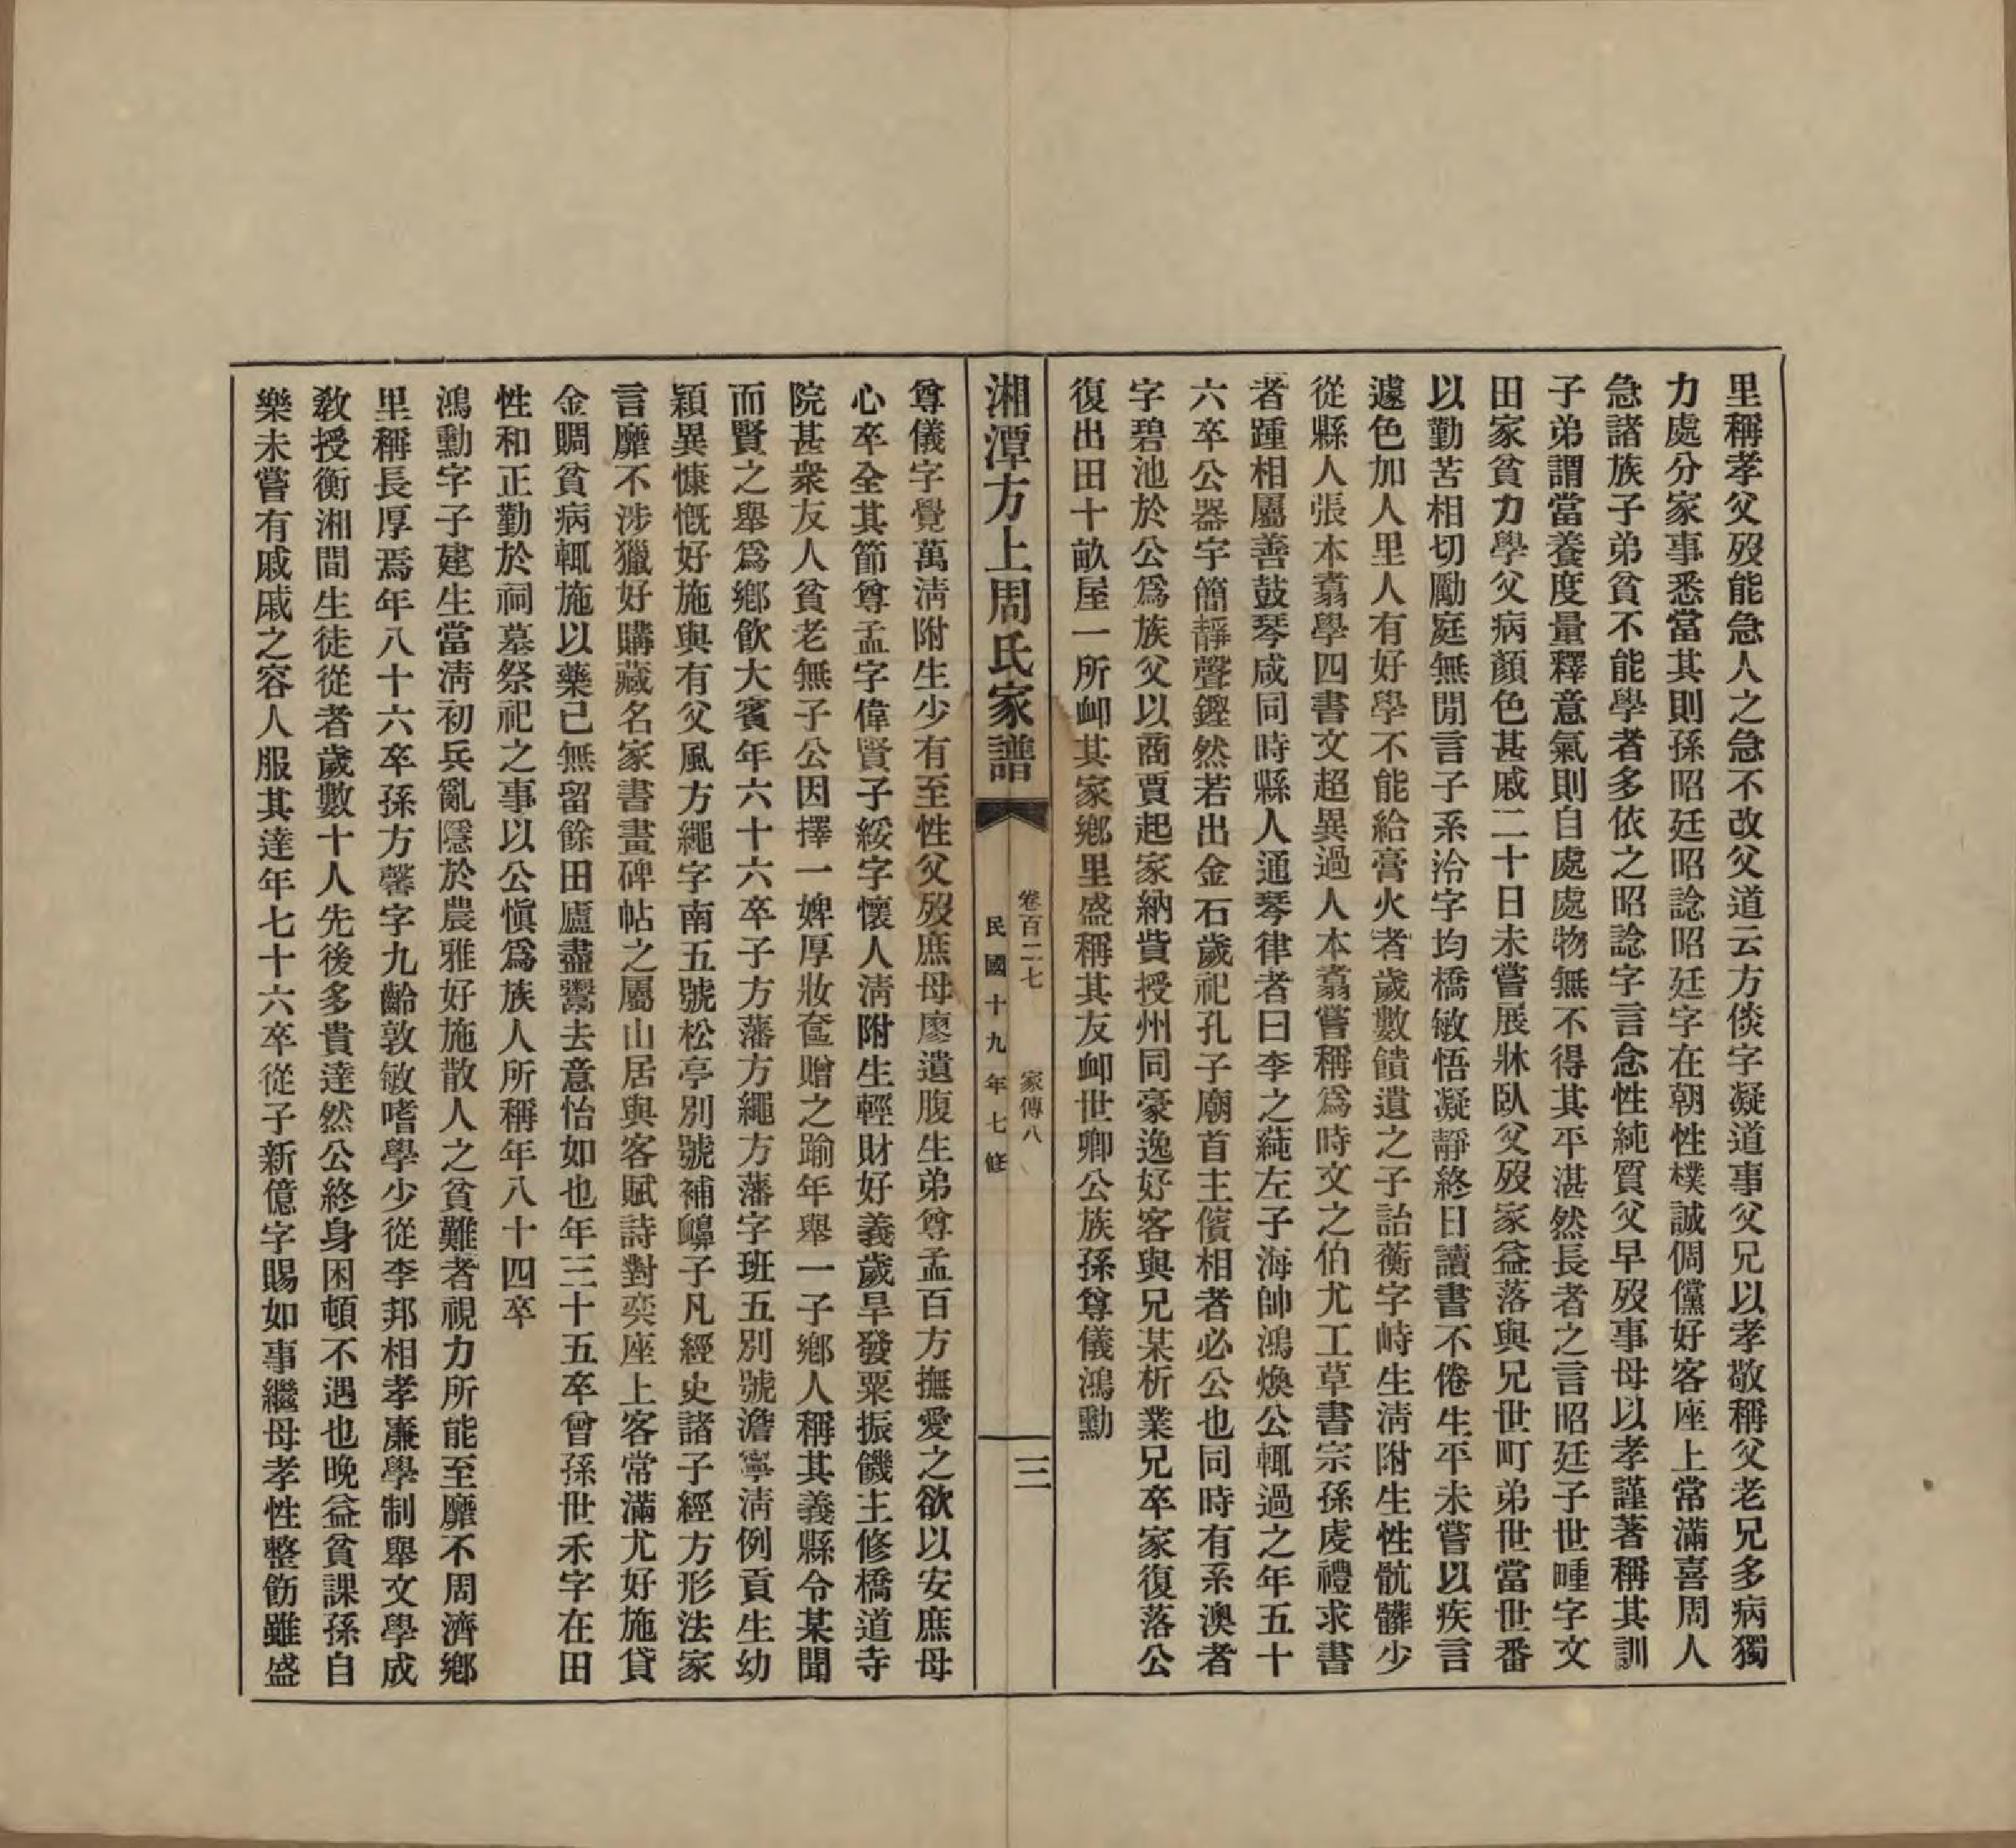 里稱孝父歿能急人之急不改父道云方倓字凝道事父兄以孝敬稱父老兄多病獨
力處分家事悉當其則孫昭廷昭諗昭廷字在朝性樸誠倜儻好客座上常滿喜周人
急諸族子弟貧不能學者多依之昭諗字言念性純質父早歿事母以孝謹著稱其訓
子弟謂當養度量釋意氣則自處處物無不得其平湛然長者之言昭廷子世畽字文
田家貧力學父病顏色甚戚二十日未嘗展牀臥父歿家益落與兄世町弟世當世番
以勤苦相切勵庭無閒言子系洽字均橋敏悟凝靜終日讀書不倦生平未嘗以疾言
遽色加人里人有好學不能給膏火者歲數饋遺之子詒蘅字峙生淸附生性骯髒少
從縣人張本翥學四書文超異過人本翥嘗稱爲時文之伯尤工草書宗孫虔禮求書
者踵相屬善鼓琴咸同時縣人通琴律者曰李之蒓左子海帥鴻煥公輒過之年五十
六卒公器宇簡靜聲鏗然若出金石歲祀孔子廟首主儐相者必公也同時有系澳者
字碧池於公爲族父以商賈起家納貲授州同豪逸好客與兄某析業兄卒家復落公
復出田十畝屋一所卹其家鄕里盛稱其友卹世卿公族孫尊儀鴻勳
湘潭方上周氏家譜
卷百二七 家傳八
民國十九年七修
三
尊儀字覺萬淸附生少有至性父歿庶母廖遺腹生弟尊孟百方撫愛之欲以安庶母
心卒全其節尊孟字偉賢子綏字懷人淸附生輕財好義歲旱發粟振饑主修橋道寺
院甚衆友人貧老無子公因擇一婢厚妝奩贈之踰年舉一子鄕人稱其義縣令某聞
而賢之舉爲鄕飮大賓年六十六卒子方藩方繩方藩字班五別號澹寧淸例貢生幼
穎異慷慨好施與有父風方繩字南五號松亭別號補齅子凡經史諸子經方形法家
言靡不涉獵好購藏名家書畫碑帖之屬山居與客賦詩對奕座上客常滿尤好施貸
金賙貧病輒施以藥己無留餘田廬盡鬻去意怡如也年三十五卒曾孫世禾字在田
性和正勤於祠墓祭祀之事以公愼爲族人所稱年八十四卒
鴻勳字子建生當淸初兵亂隱於農雅好施散人之貧難者視力所能至靡不周濟鄕
里稱長厚焉年八十六卒孫方馨字九齡敦敏嗜學少從李邦相孝廉學制舉文學成
敎授衡湘間生徒從者歲數十人先後多貴達然公終身困頓不遇也晚益貧課孫自
樂未嘗有戚戚之容人服其達年七十六卒從子新億字賜如事繼母孝性整飭雖盛